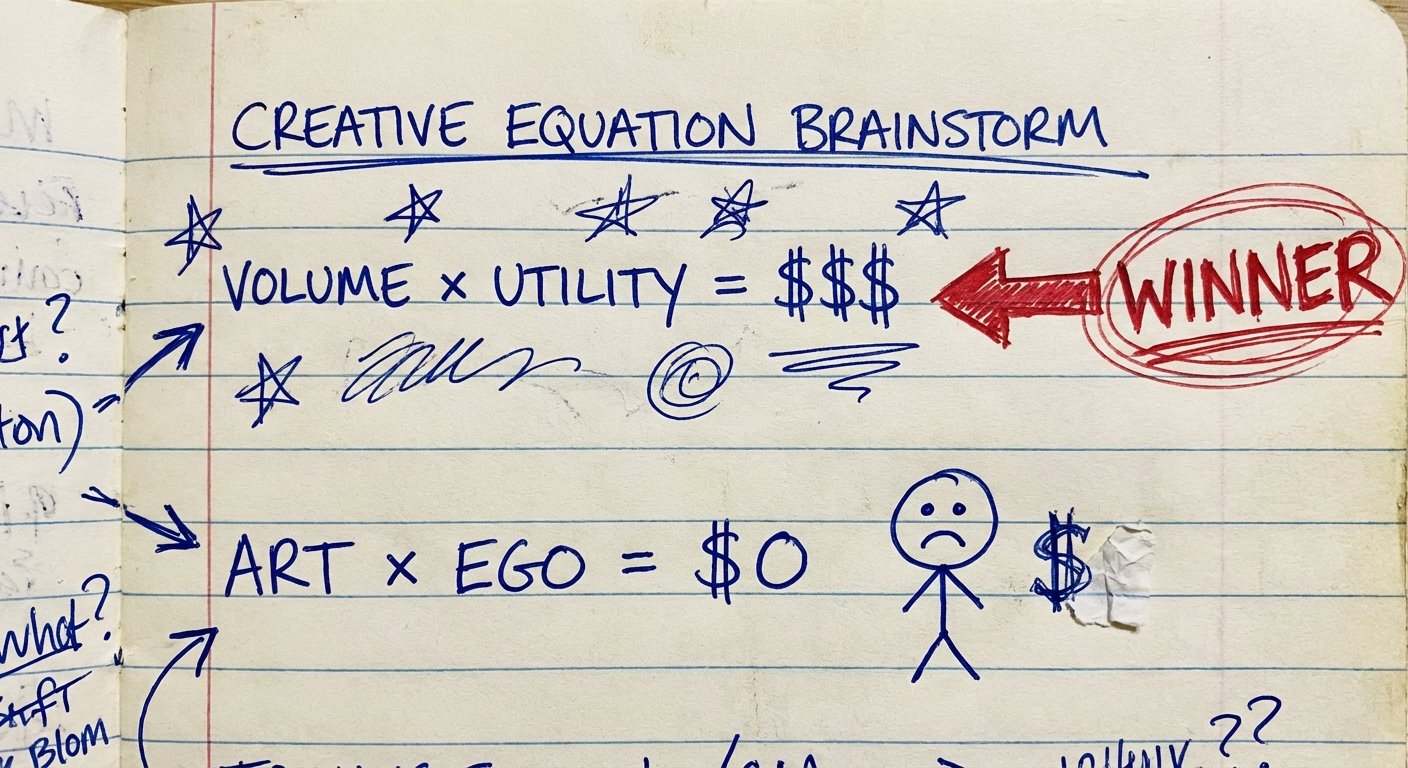 CREATIVE EQUATION BRAINSTORM
VOLUME × UTILITY = $$$
WINNER
ART × EGO = $0
$
?
ton)
What?
Blom
??